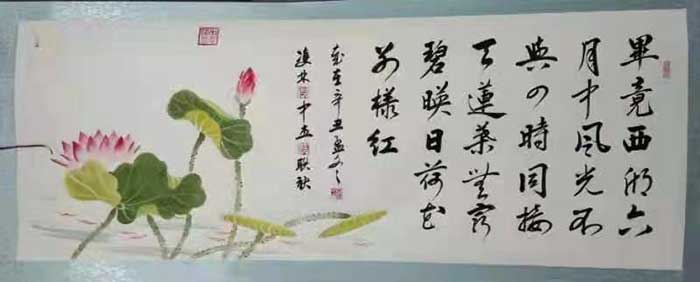 畢竟西湖六
月中風光不
與四時同接
天蓮葉無窮
碧映日荷花
别樣紅
歲在辛丑
中 联秋